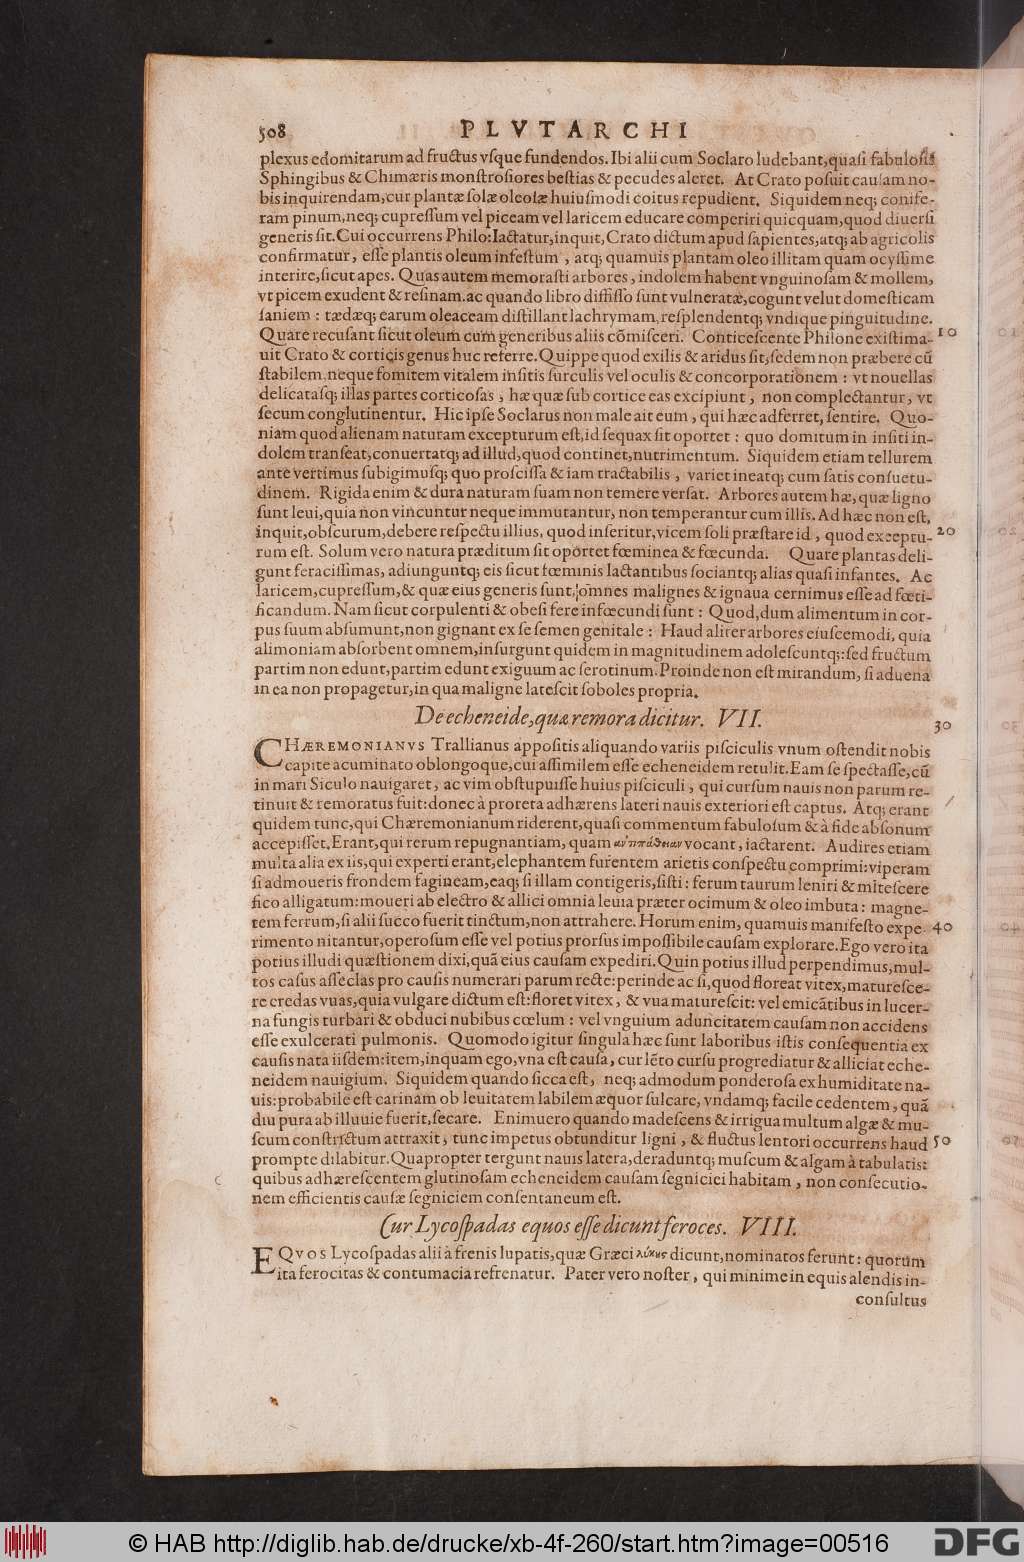 508 PLVTARCHI
plexus edomitarum ad fructus vsque fundendos. Ibi alii cum Soclaro ludebant, quasi fabulosis
Sphingibus & Chimæris monstrosiores bestias & pecudes aleret. At Crato posuit causam no-
bis inquirendam, cur plantæ solæ oleosæ huiusmodi coitus repudient. Siquidem neq; conife-
ram pinum, neq; cupressum vel piceam vel laricem educare comperiri quicquam, quod diuersi
generis sit. Cui occurrens Philo: Iactatur, inquit, Crato dictum apud sapientes, atq; ab agricolis
confirmatur, esse plantis oleum infestum, atq; quamuis plantam oleo illitam quam ocyssime
interire, sicut apes. Quas autem memorasti arbores, indolem habent vnguinosam & mollem,
vt picem exudent & resinam. ac quando libro diffisso sunt vulneratæ, cogunt velut domesticam
saniem: tædæq; earum oleaceam distillant lachrymam, resplendentq; vndique pinguitudine.
Quare recusant sicut oleum cum generibus aliis cõmisceri. Conticescente Philone existima- 10
uit Crato & corticis genus huc referre. Quippe quod exilis & aridus sit, sedem non præbere cũ
stabilem, neque fomitem vitalem insitis surculis vel oculis & concorporationem: vt nouellas
delicatasq; illas partes corticosas, hæ quæ sub cortice eas excipiunt, non complectantur, vt
secum conglutinentur. Hic ipse Soclarus non male ait eum, qui hæc adferret, sentire. Quo-
niam quod alienam naturam excepturum est, id sequax sit oportet: quo domitum in insiti in-
dolem transeat, conuertatq; ad illud, quod continet, nutrimentum. Siquidem etiam tellurem
ante vertimus subigimusq; quo proscissa & iam tractabilis, variet ineatq; cum satis consuetu-
dinem. Rigida enim & dura naturam suam non temere versat. Arbores autem hæ, quæ ligno
sunt leui, quia non vincuntur neque immutantur, non temperantur cum illis. Ad hæc non est,
inquit, obscurum, debere respectu illius, quod inseritur, vicem soli præstare id, quod exceptu- 20
rum est. Solum vero natura præditum sit oportet fœminea & fœcunda. Quare plantas deli-
gunt feracissimas, adiunguntq; eis sicut fœminis lactantibus sociantq; alias quasi infantes. Ac
laricem, cupressum, & quæ eius generis sunt, omnes malignes & ignaua cernimus esse ad fœti-
ficandum. Nam sicut corpulenti & obesi fere infœcundi sunt: Quod, dum alimentum in cor-
pus suum absumunt, non gignant ex se semen genitale: Haud aliter arbores eiuscemodi, quia
alimoniam absorbent omnem, insurgunt quidem in magnitudinem adolescuntq;: sed fructum
partim non edunt, partim edunt exiguum ac serotinum. Proinde non est mirandum, si aduena
in ea non propagetur, in qua maligne latescit soboles propria.
De echeneide, quæ remora dicitur. VII. 30
CHÆREMONIANVS Trallianus appositis aliquando variis pisciculis vnum ostendit nobis
capite acuminato oblongoque, cui assimilem esse echeneidem retulit. Eam se spectasse, cũ
in mari Siculo nauigaret, ac vim obstupuisse huius pisciculi, qui cursum nauis non parum re-
tinuit & remoratus fuit: donec à proreta adhærens lateri nauis exteriori est captus. Atq; erant
quidem tunc, qui Chæremonianum riderent, quasi commentum fabulosum & à fide absonum
accepisset. Erant, qui rerum repugnantiam, quam ἀντιπάθειαν vocant, iactarent. Audires etiam
multa alia ex iis, qui experti erant, elephantem furentem arietis conspectu comprimi: viperam
si admoueris frondem fagineam, eaq; si illam contigeris, sisti: ferum taurum leniri & mitescere
fico alligatum: moueri ab electro & allici omnia leuia præter ocimum & oleo imbuta: magne-
tem ferrum, si alii succo fuerit tinctum, non attrahere. Horum enim, quamuis manifesto expe- 40
rimento nitantur, operosum esse vel potius prorsus impossibile causam explorare. Ego vero ita
potius illudi quæstionem dixi, quã eius causam expediri. Quin potius illud perpendimus, mul-
tos casus asseclas pro causis numerari parum recte: perinde ac si, quod floreat vitex, maturesce-
re credas vuas, quia vulgare dictum est: floret vitex, & vua maturescit: vel emicãtibus in lucer-
na fungis turbari & obduci nubibus cœlum: vel vnguium aduncitatem causam non accidens
esse exulcerati pulmonis. Quomodo igitur singula hæc sunt laboribus istis consequentia ex
causis nata iisdem: item, inquam ego, vna est causa, cur lẽto cursu progrediatur & alliciat eche-
neidem nauigium. Siquidem quando sicca est, neq; admodum ponderosa ex humiditate na-
uis: probabile est carinam ob leuitatem labilem æquor sulcare, vndamq; facile cedentem, quã
diu pura ab illuuie fuerit, secare. Enimuero quando madescens & irrigua multum algæ & mu-
scum constrictum attraxit, tunc impetus obtunditur ligni, & fluctus lentori occurrens haud 50
prompte dilabitur. Quapropter tergunt nauis latera, deraduntq; muscum & algam à tabulatis:
quibus adhærescentem glutinosam echeneidem causam segniciei habitam, non consecutio-
nem efficientis causæ segniciem consentaneum est.
Cur Lycospadas equos esse dicunt feroces. VIII.
EQVOS Lycospadas alii à frenis lupatis, quæ Græci λύκους dicunt, nominatos ferunt: quorum
ita ferocitas & contumacia refrenatur. Pater vero noster, qui minime in equis alendis in-
consultus
© HAB http://diglib.hab.de/drucke/xb-4f-260/start.htm?image=00516
DFG